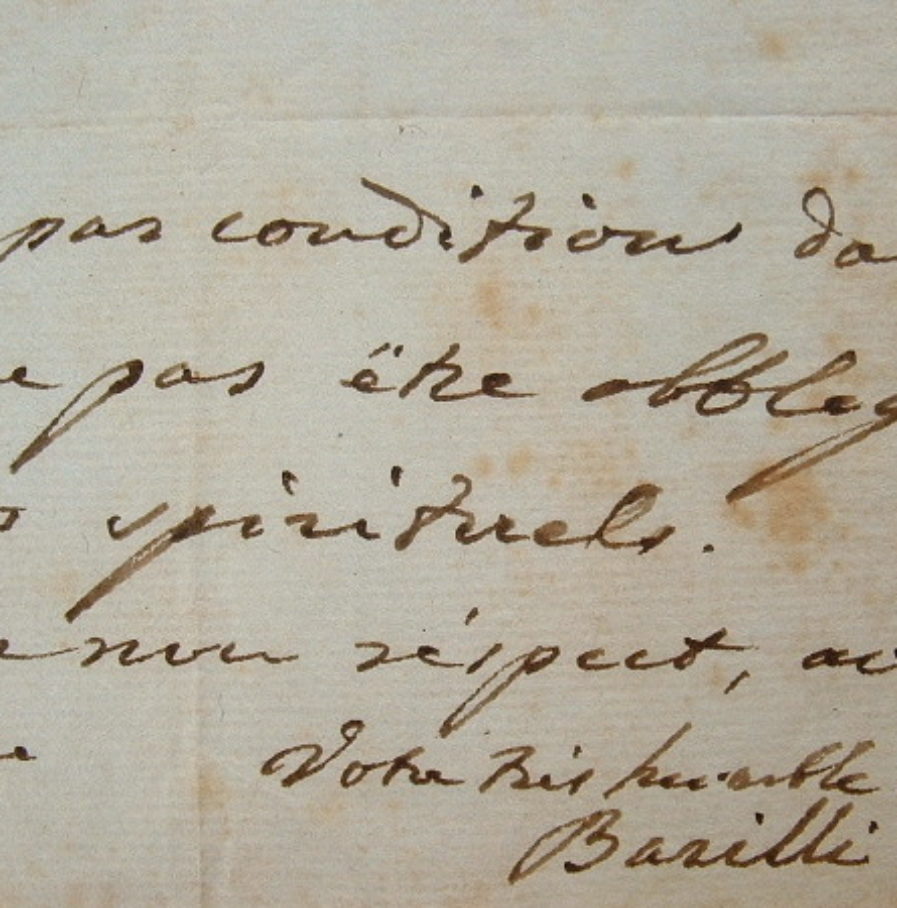 pas conditions da
e pas ëtre obbleg
spirituels.
mon réspect, av
Votre très humble
Barilli